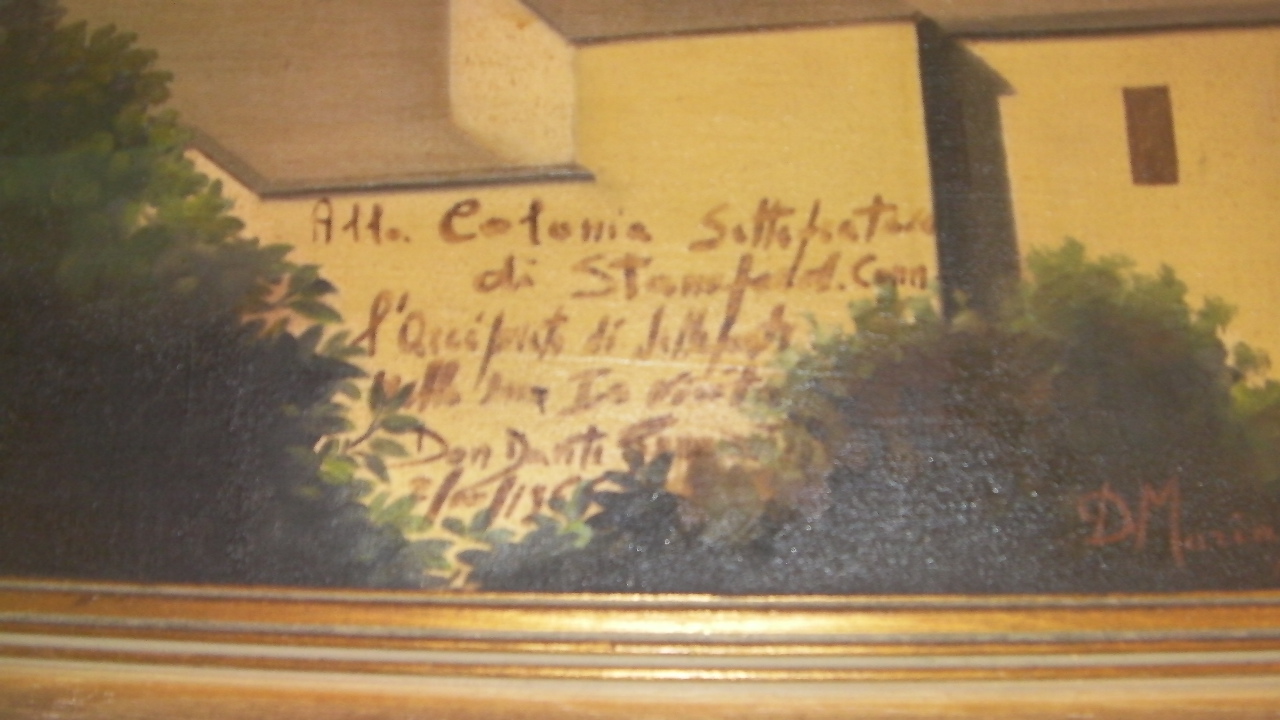 Alla Colonia Settefratese
di Stamford. Conn.
l'Arciprete di Settefrati
nella sua Ia visita
Don Dante
D Marin